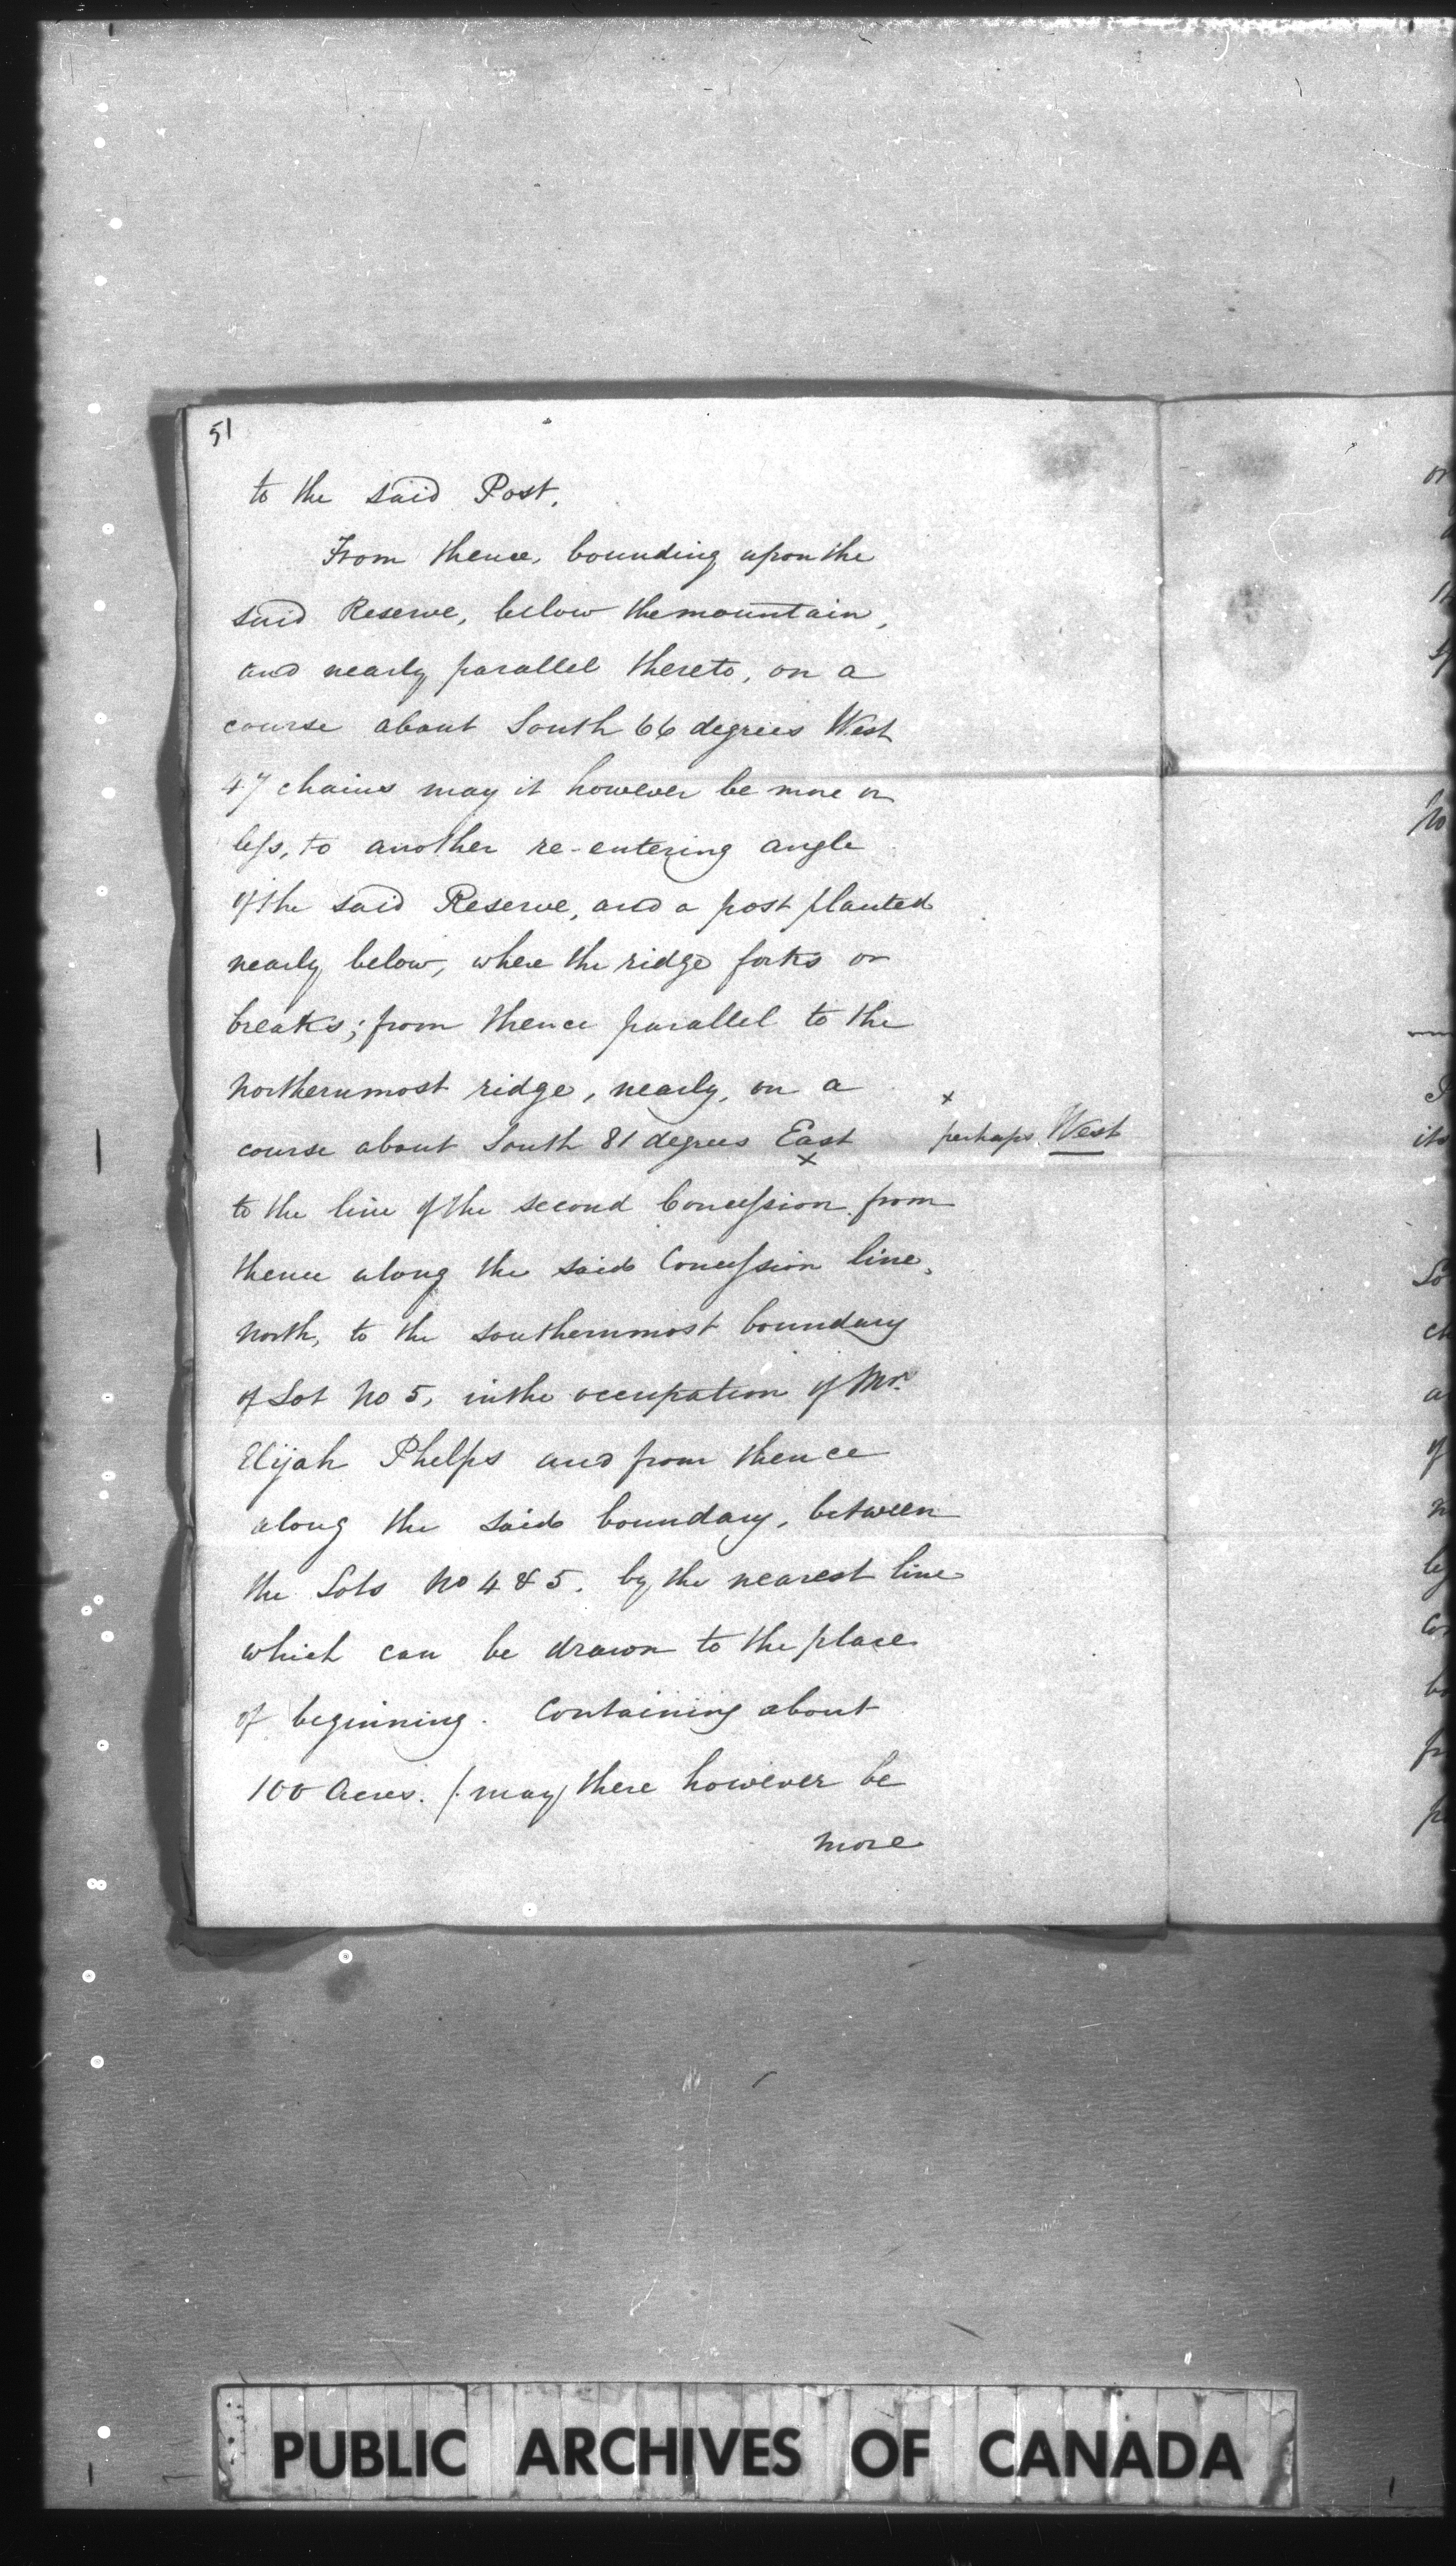 51
to the said Post.
From thence, bounding upon the
said Reserve, below the mountain,
and nearly parallel thereto, on a
course about South 66 degrees West
47 chains may it however be more or
less, to another re-entering angle
of the said Reserve, and a post planted
nearly below, where the ridge forks or
breaks; from thence parallel to the
Northernmost ridge, nearly, on a
course about South 81 degrees East x
x perhaps West
to the line of the second Concession from
thence along the said Concession line,
North, to the Southernmost boundary
of Lot No 5, in the occupation of Mr.
Elijah Phelps and from thence
along the said boundary, between
the Lots No 4 & 5. by the nearest line
which can be drawn to the place
of beginning. Containing about
100 Acres. (. may there however be
more
PUBLIC ARCHIVES OF CANADA